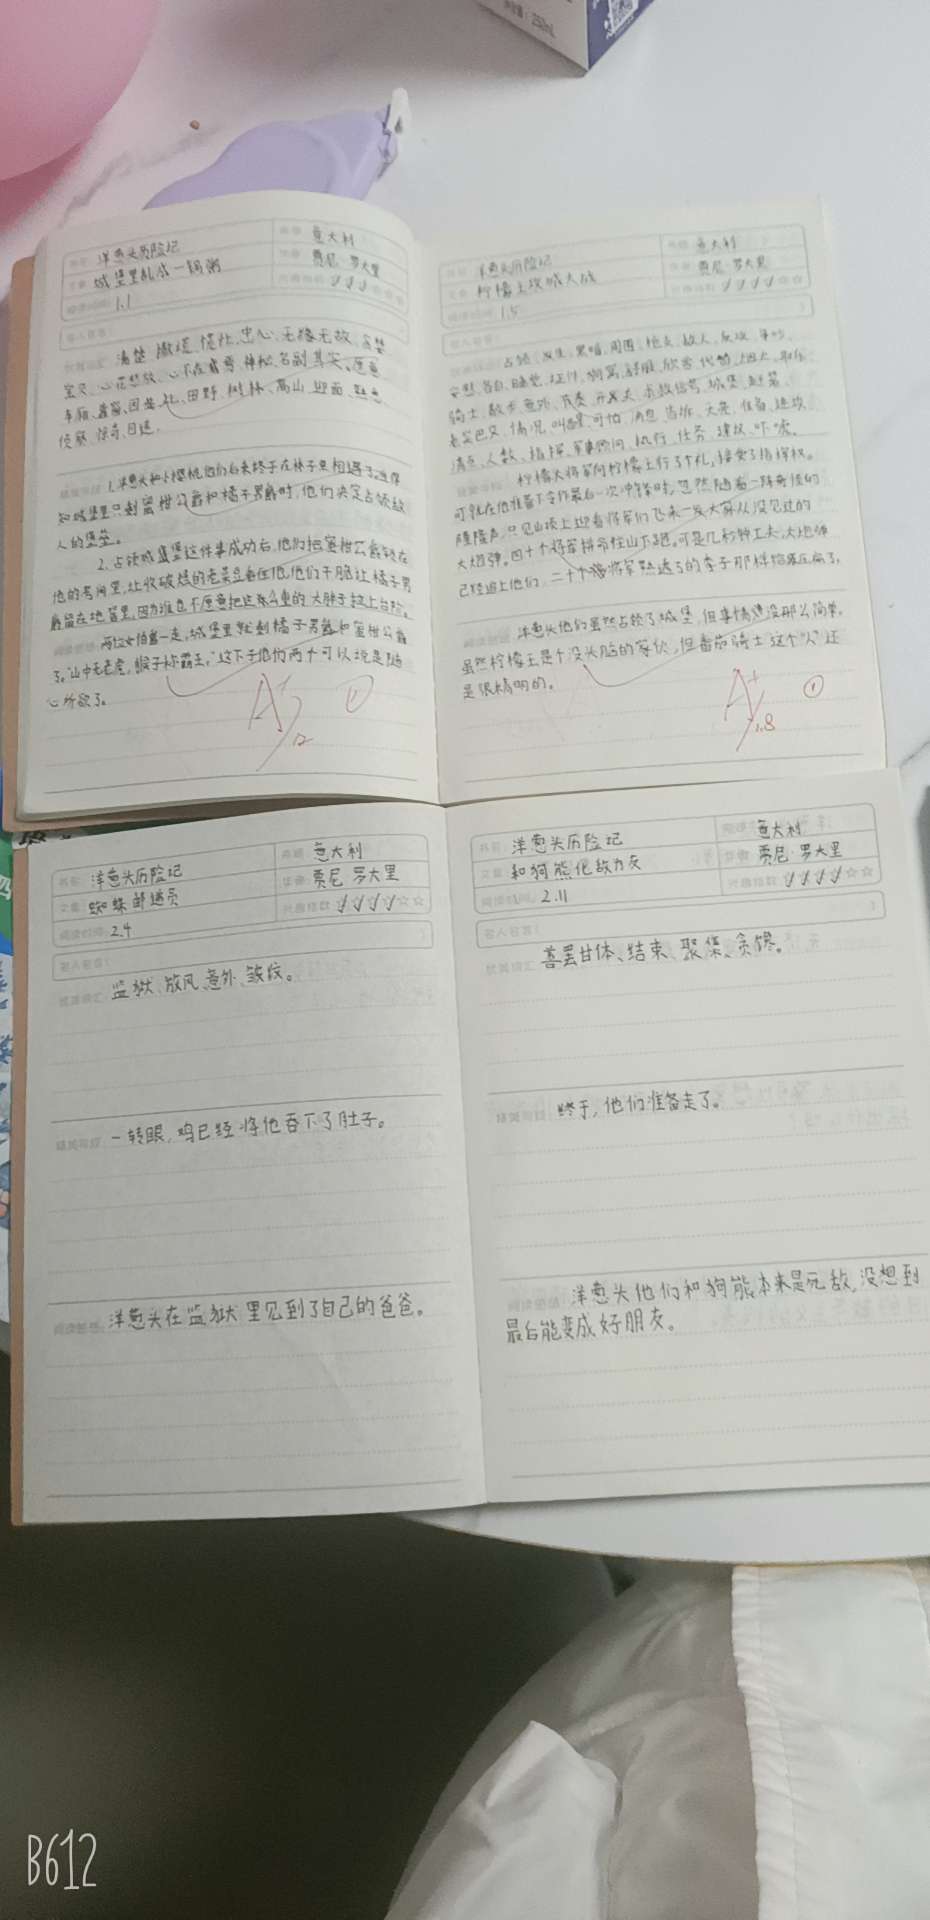 净含量：250mL
书名 洋葱头历险记 国籍 意大利
文章 城堡里乱成一锅粥 作者 贾尼·罗大里
阅读时间 1.1 兴趣指数
名人名言：
清楚、撒谎、忠心、无缘无故、
宝贝、心花怒放、心不在焉、名副其实、愿意
车厢、田野、树林、高山、迎面
侦察、惊奇、目送。
1.洋葱头和小樱桃他们后来终于在林子里相遇了。
知城堡里只剩蜜柑公爵和橘子男爵时，他们决定占领敌
人的堡垒。
2.占领城堡这件事成功后，他们把蜜柑公爵锁在
他的房间里，让收破烂的老菜豆看住他，他们干脆让橘子男
爵留在地窖里，因为谁也不愿意把这么重的大胖子拉上台阶。
两位女伯爵一走，城堡里就剩橘子男爵和蜜柑公爵
了。“山中无老虎，猴子称霸王，”这下子他们两个可以说是随
心所欲了。
A+ 1.2 ①
书名 洋葱头历险记 国籍 意大利
文章 柠檬王攻城大战 作者 贾尼·罗大里
阅读时间 1.5 兴趣指数
名人名言：
占领、发生、黑暗、周围、地点、敌人、反攻、争吵、
安慰、各自、睡觉、狗窝、舒服、欣赏、代替、烟火、
骑士、散步、意外、求救信号、城堡、
情况、叫醒、可怕、消息、告诉、天亮、准备、进攻
清点、人数、指挥、军事顾问、执行、任务、建议、吓唬。
柠檬大将军向柠檬王行了个礼，接受了指挥权。
可就在他准备下令作最后一次冲锋时，忽然随着一阵奇怪的
隆隆声，只见山顶上迎着将军们飞来一发大家从没见过的
大炮弹。四十个将军拼命往山下跑。可是几秒钟工夫，大炮弹
已经追上他们，二十个将军熟透了的李子那样给压扁了。
洋葱头他们虽然占领了城堡，但事情远没那么简单。
虽然柠檬王是个没头脑的家伙，但番茄骑士这个“人”还
是很精明的。
A+ 1.8 ①
书名 洋葱头历险记 国籍 意大利
文章 蜘蛛邮递员 作者 贾尼·罗大里
阅读时间 2.4 兴趣指数
名人名言：
优美词汇 监狱、放风、意外、皱纹。
精美句段 一转眼，鸡已经将他吞下了肚子。
阅读感悟 洋葱头在监狱里见到了自己的爸爸。
书名 洋葱头历险记 国籍 意大利
文章 和狗熊化敌为友 作者 贾尼·罗大里
阅读时间 2.11 兴趣指数
名人名言：
优美词汇 善罢甘休、结束、聚集、贪馋。
精美句段 终于，他们准备走了。
阅读感悟 洋葱头他们和狗熊本来是死敌，没想到
最后能变成好朋友。
B612